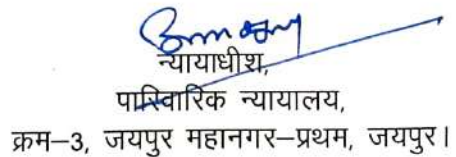 न्यायाधीश,
पारिवारिक न्यायालय,
क्रम–3, जयपुर महानगर–प्रथम, जयपुर।